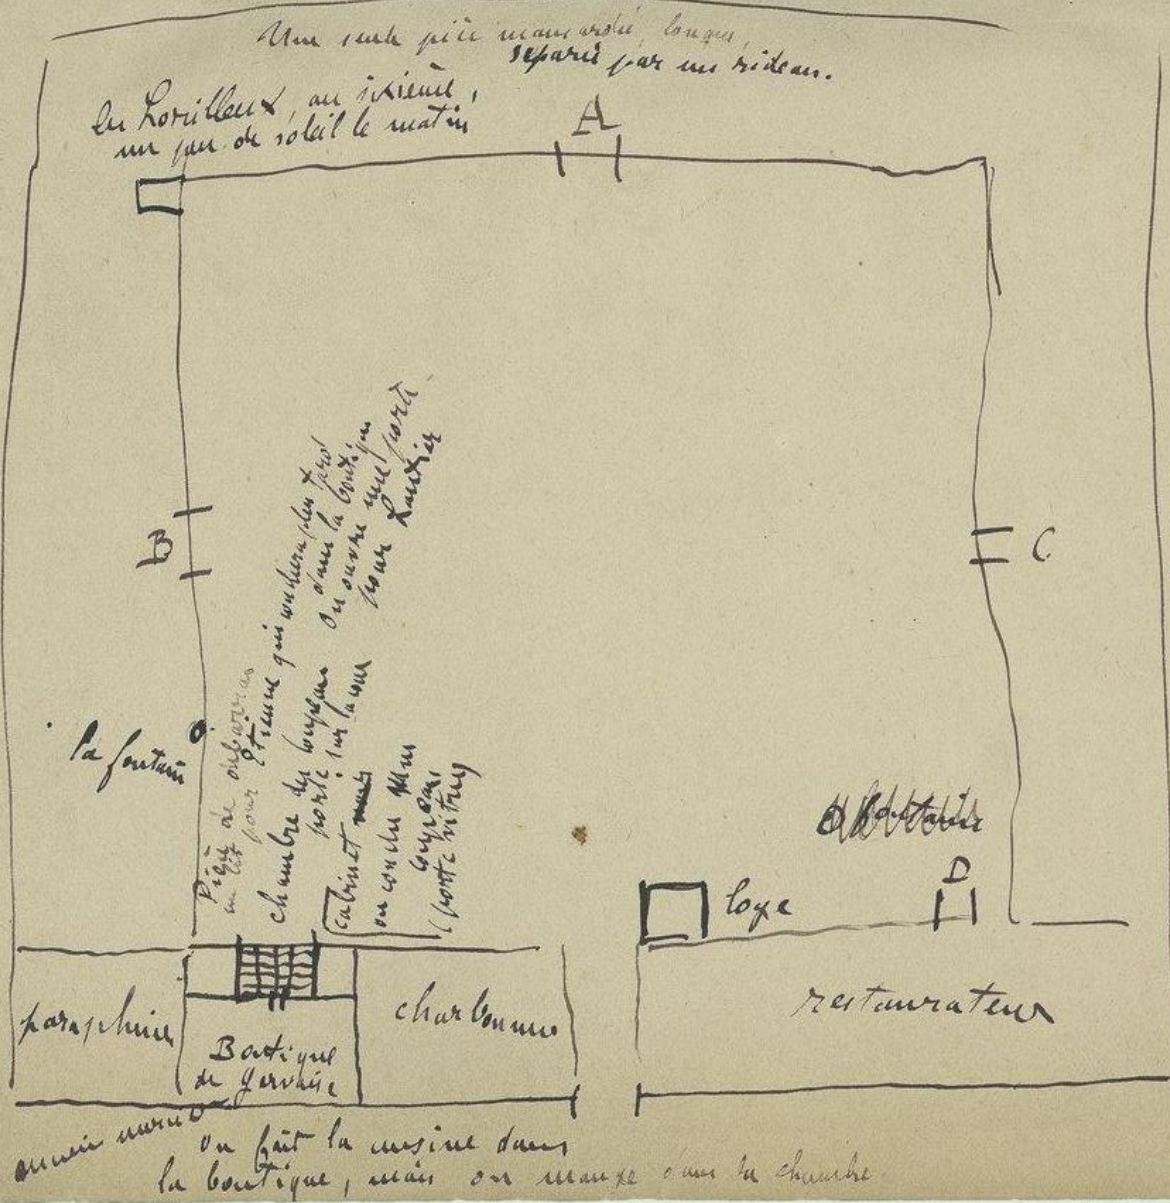 Une seule pièce mansardée, longue,
séparée par un rideau.
Les Lorilleux, au sixième,
un peu de soleil le matin
A
B
C
la fontaine
Pièce de débarras
un lit pour Etienne qui couchera plus tard
dans la boutique
chambre des Coupeau
porte sur la cour
On ouvre une porte
pour Lantier
cabinet
où couche Mme
Coupeau
(porte vitrée)
D
loge
parapluies
Boutique
de Gervaise
charbonnier
restaurateur
On fait la cuisine dans
la boutique, mais on mange dans la chambre